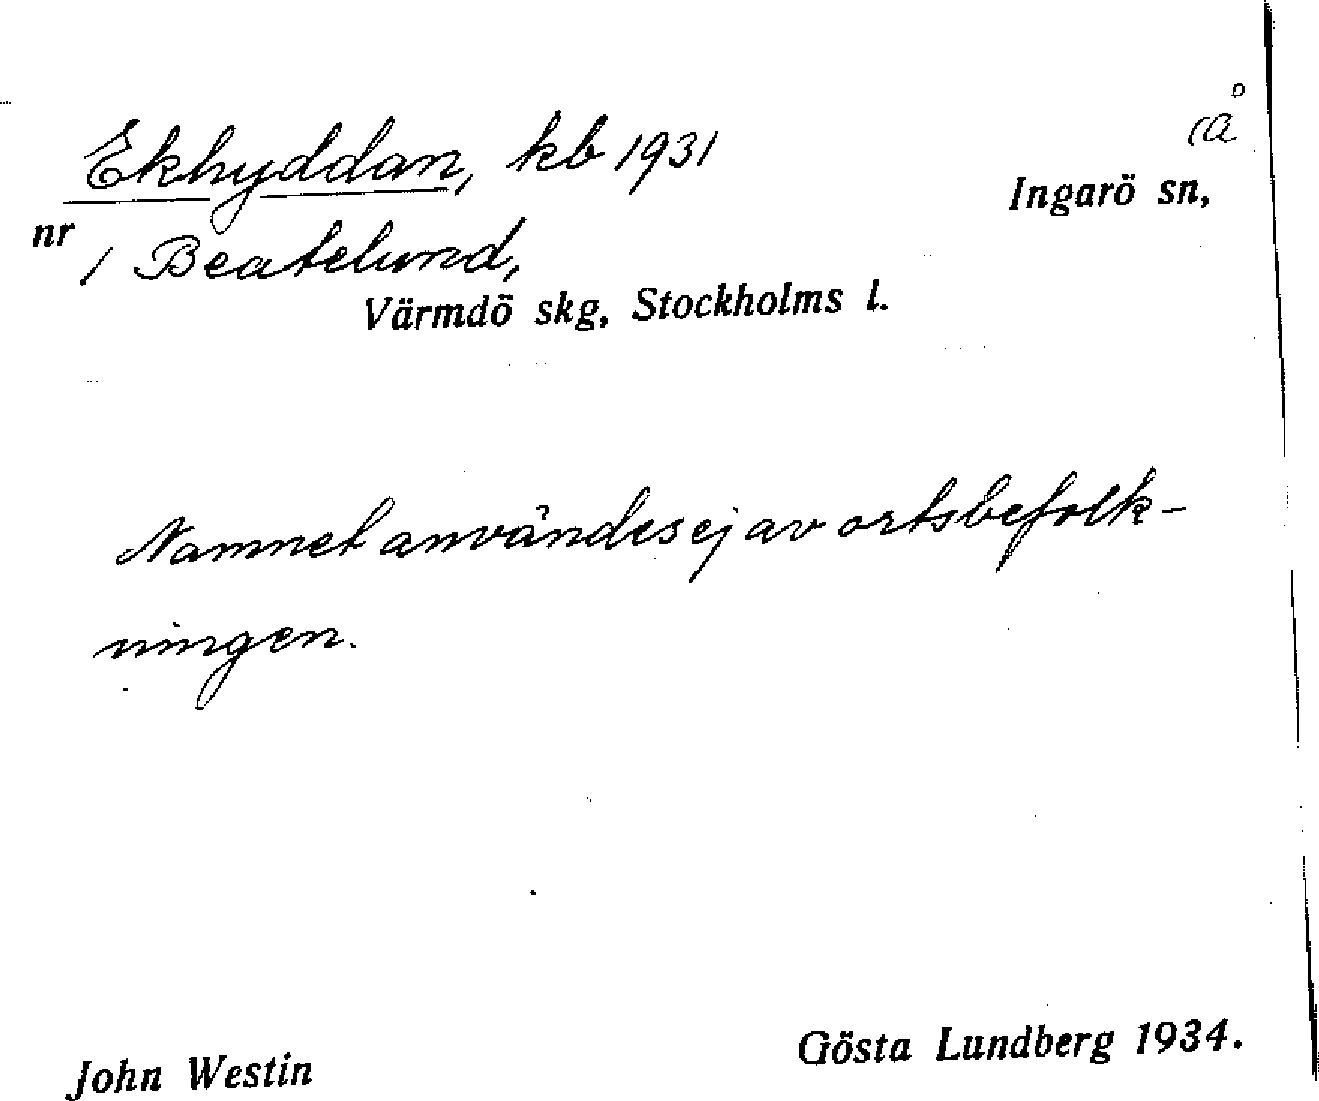 Ekhyddan, kb 1931
Ingarö sn,
nr 1 Beatelund,
Värmdö skg, Stockholms l.
Namnet användes ej av ortsbefolk-
ningen.
John Westin
Gösta Lundberg 1934.